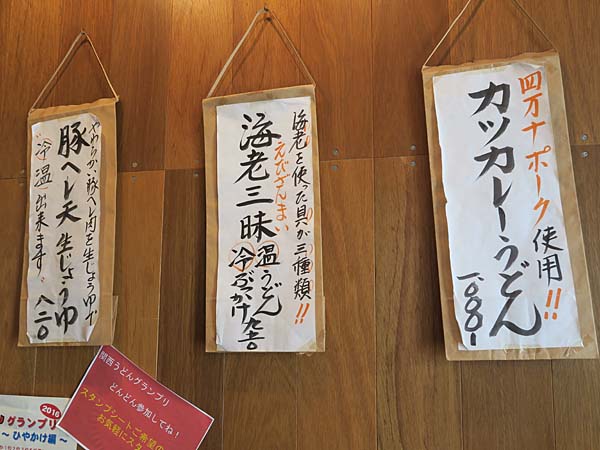 四万十ポーク使用!!
カツカレーうどん
一、〇〇〇
海老を使った具が三種類!!
えびざんまい
海老三昧
温うどん
冷ぶっかけ
九七〇
やわらかい豚ヘレ肉を生じょうゆで
豚ヘレ天生じょうゆ
冷温出来ます。八二〇
関西うどんグランプリ
どんどん参加してね!
スタンプシートご希望の
お気軽にスタ
2016
グランプリ
〜ひやかけ編〜